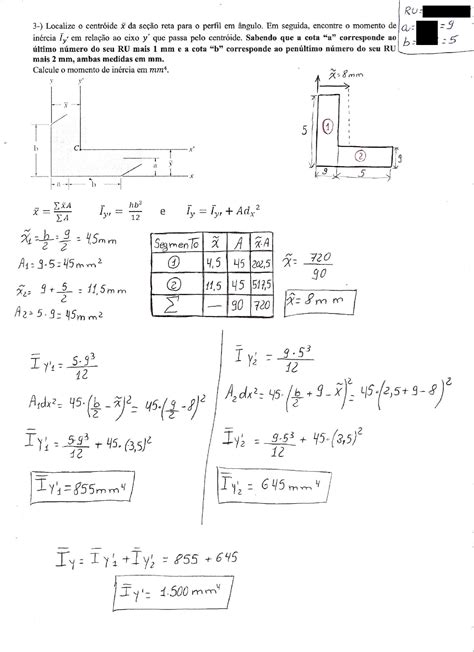 RU=
a= = 9
b= = 5
3-) Localize o centróide x̄ da seção reta para o perfil em ângulo. Em seguida, encontre o momento de
inércia Īy' em relação ao eixo y´ que passa pelo centróide. Sabendo que a cota “a” corresponde ao
último número do seu RU mais 1 mm e a cota “b” corresponde ao penúltimo número do seu RU
mais 2 mm, ambas medidas em mm.
Calcule o momento de inércia em mm⁴.
y y'
x̄
b
C x'
a
x
a b
x̃=8mm
5 ① ② 9
9 5
x̄ = Σx̃A / ΣA Īy' = hb³/12 e Īy = Īy' + Adx²
x̃1 = b/2 = 9/2 = 4,5mm
A1 = 9·5 = 45mm²
x̃2 = 9 + 5/2 = 11,5mm
A2 = 5·9 = 45mm²
Segmento x̃ A x̃·A
① 4,5 45 202,5
② 11,5 45 517,5
Σ — 90 720
x̃ = 720/90
x̃ = 8mm
Īy'1 = 5·9³/12
A1dx² = 45·(b/2 - x̃)² = 45·(9/2 - 8)²
Īy'1 = 5·9³/12 + 45·(3,5)²
Īy'1 = 855mm⁴
Īy'2 = 9·5³/12
A2dx² = 45·(b/2 + 9 - x̃)² = 45·(2,5+9-8)²
Īy'2 = 9·5³/12 + 45·(3,5)²
Īy'2 = 645mm⁴
Īy = Īy'1 + Īy'2 = 855 + 645
Īy' = 1.500mm⁴